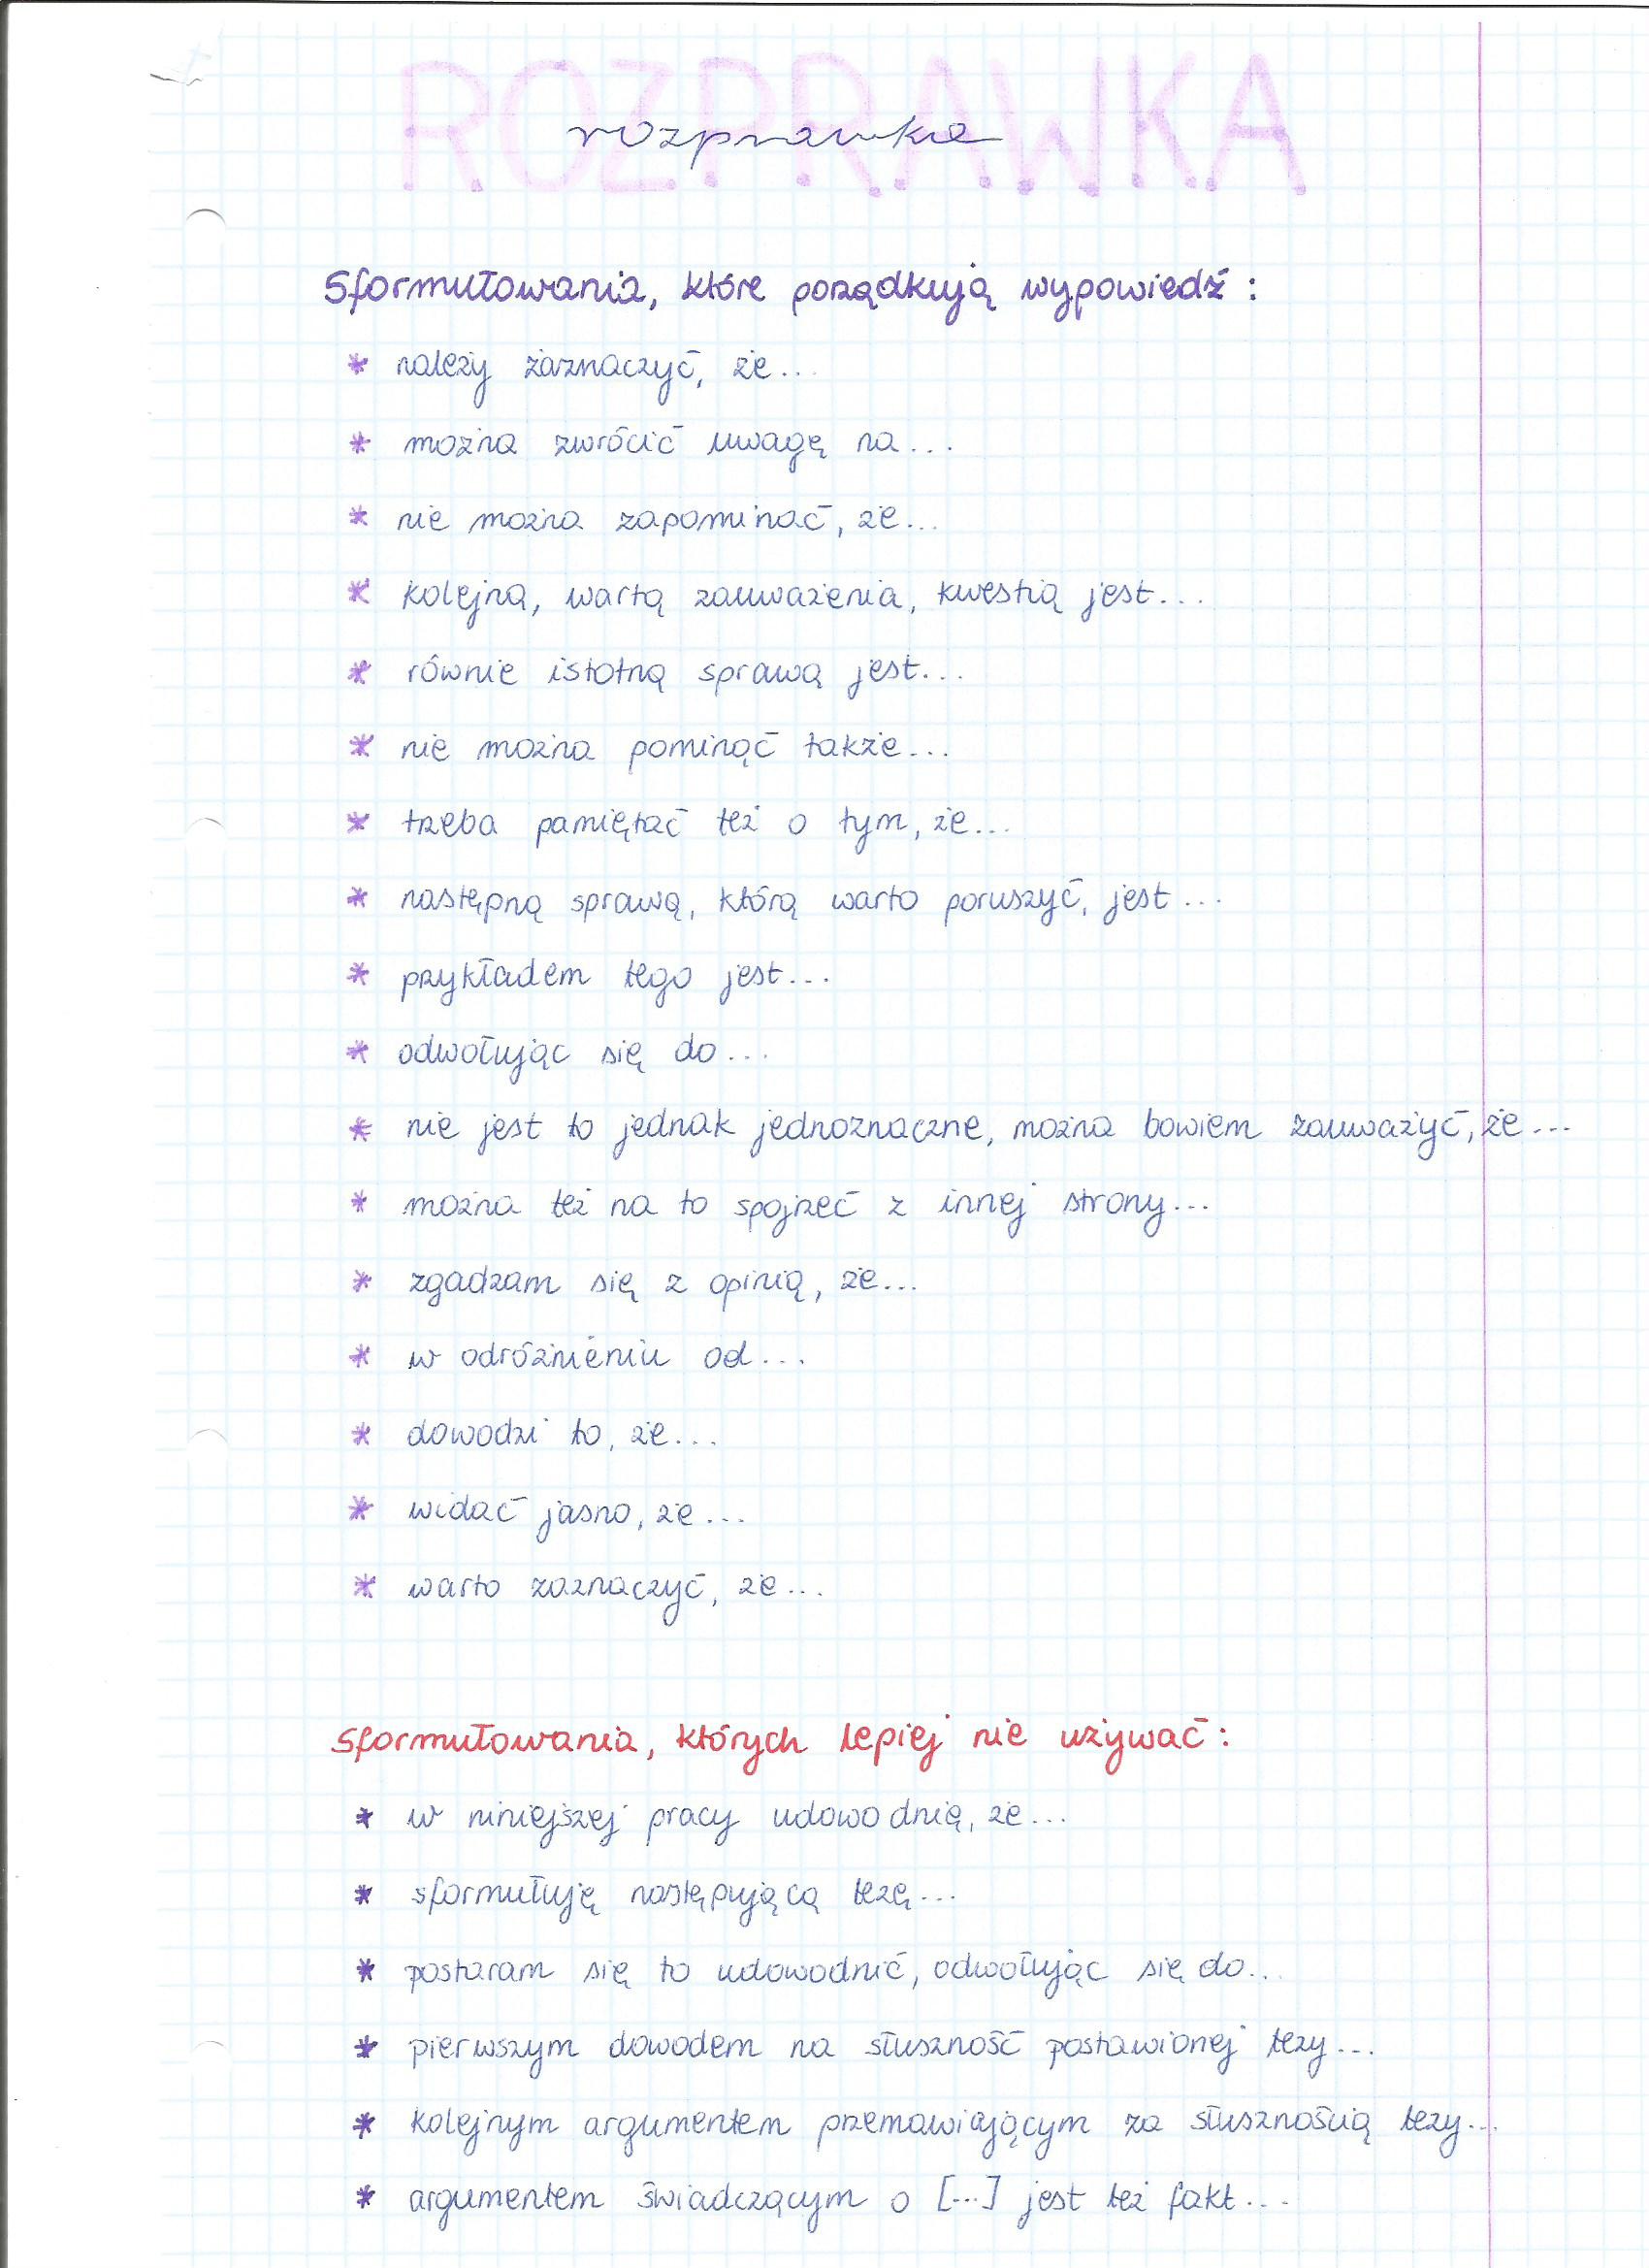 ROZPRAWKA
rozprawka
Sformułowania, które porządkują wypowiedź:
* należy zaznaczyć, że...
* można zwrócić uwagę na...
* nie można zapominać, że...
* kolejną, wartą zauważenia, kwestią jest...
* równie istotną sprawą jest...
* nie można pominąć także...
* trzeba pamiętać też o tym, że...
* następną sprawą, którą warto poruszyć, jest...
* przykładem tego jest...
* odwołując się do...
* nie jest to jednak jednoznaczne, można bowiem zauważyć, że...
* można też na to spojrzeć z innej strony...
* zgadzam się z opinią, że...
* w odróżnieniu od...
* dowodzi to, że...
* widać jasno, że...
* warto zaznaczyć, że...
Sformułowania, których lepiej nie używać:
* w niniejszej pracy udowodnię, że...
* sformułuję następującą tezę...
* postaram się to udowodnić, odwołując się do...
* pierwszym dowodem na słuszność postawionej tezy...
* kolejnym argumentem przemawiającym za słusznością tezy...
* argumentem świadczącym o [...] jest też fakt...